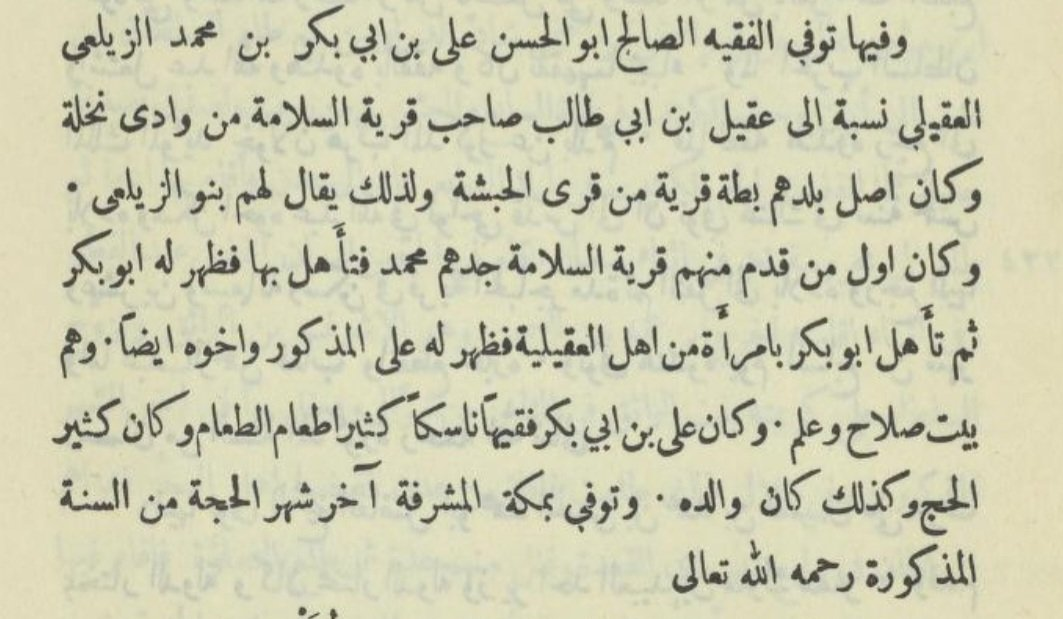 وفيها توفي الفقيه الصالح ابو الحسن على بن ابي بكر بن محمد الزيلعى
العقيلي نسبة الى عقيل بن ابي طالب صاحب قرية السلامة من وادى نخلة
وكان اصل بلدهم بطة قرية من قرى الحبشة ولذلك يقال لهم بنو الزيلعى ٠
وكان اول من قدم منهم قرية السلامة جدهم محمد فتأهل بها فظهر له ابو بكر
ثم تأهل ابو بكر بامرأة من اهل العقيلية فظهر له على المذكور واخوه ايضاً ٠ وهم
بيت صلاح وعلم ٠ وكان على بن ابي بكر فقيهاً ناسكاً كثير اطعام الطعام وكان كثير
الحج وكذلك كان والده ٠ وتوفي بمكة المشرفة آخر شهر الحجة من السنة
المذكورة رحمه الله تعالى